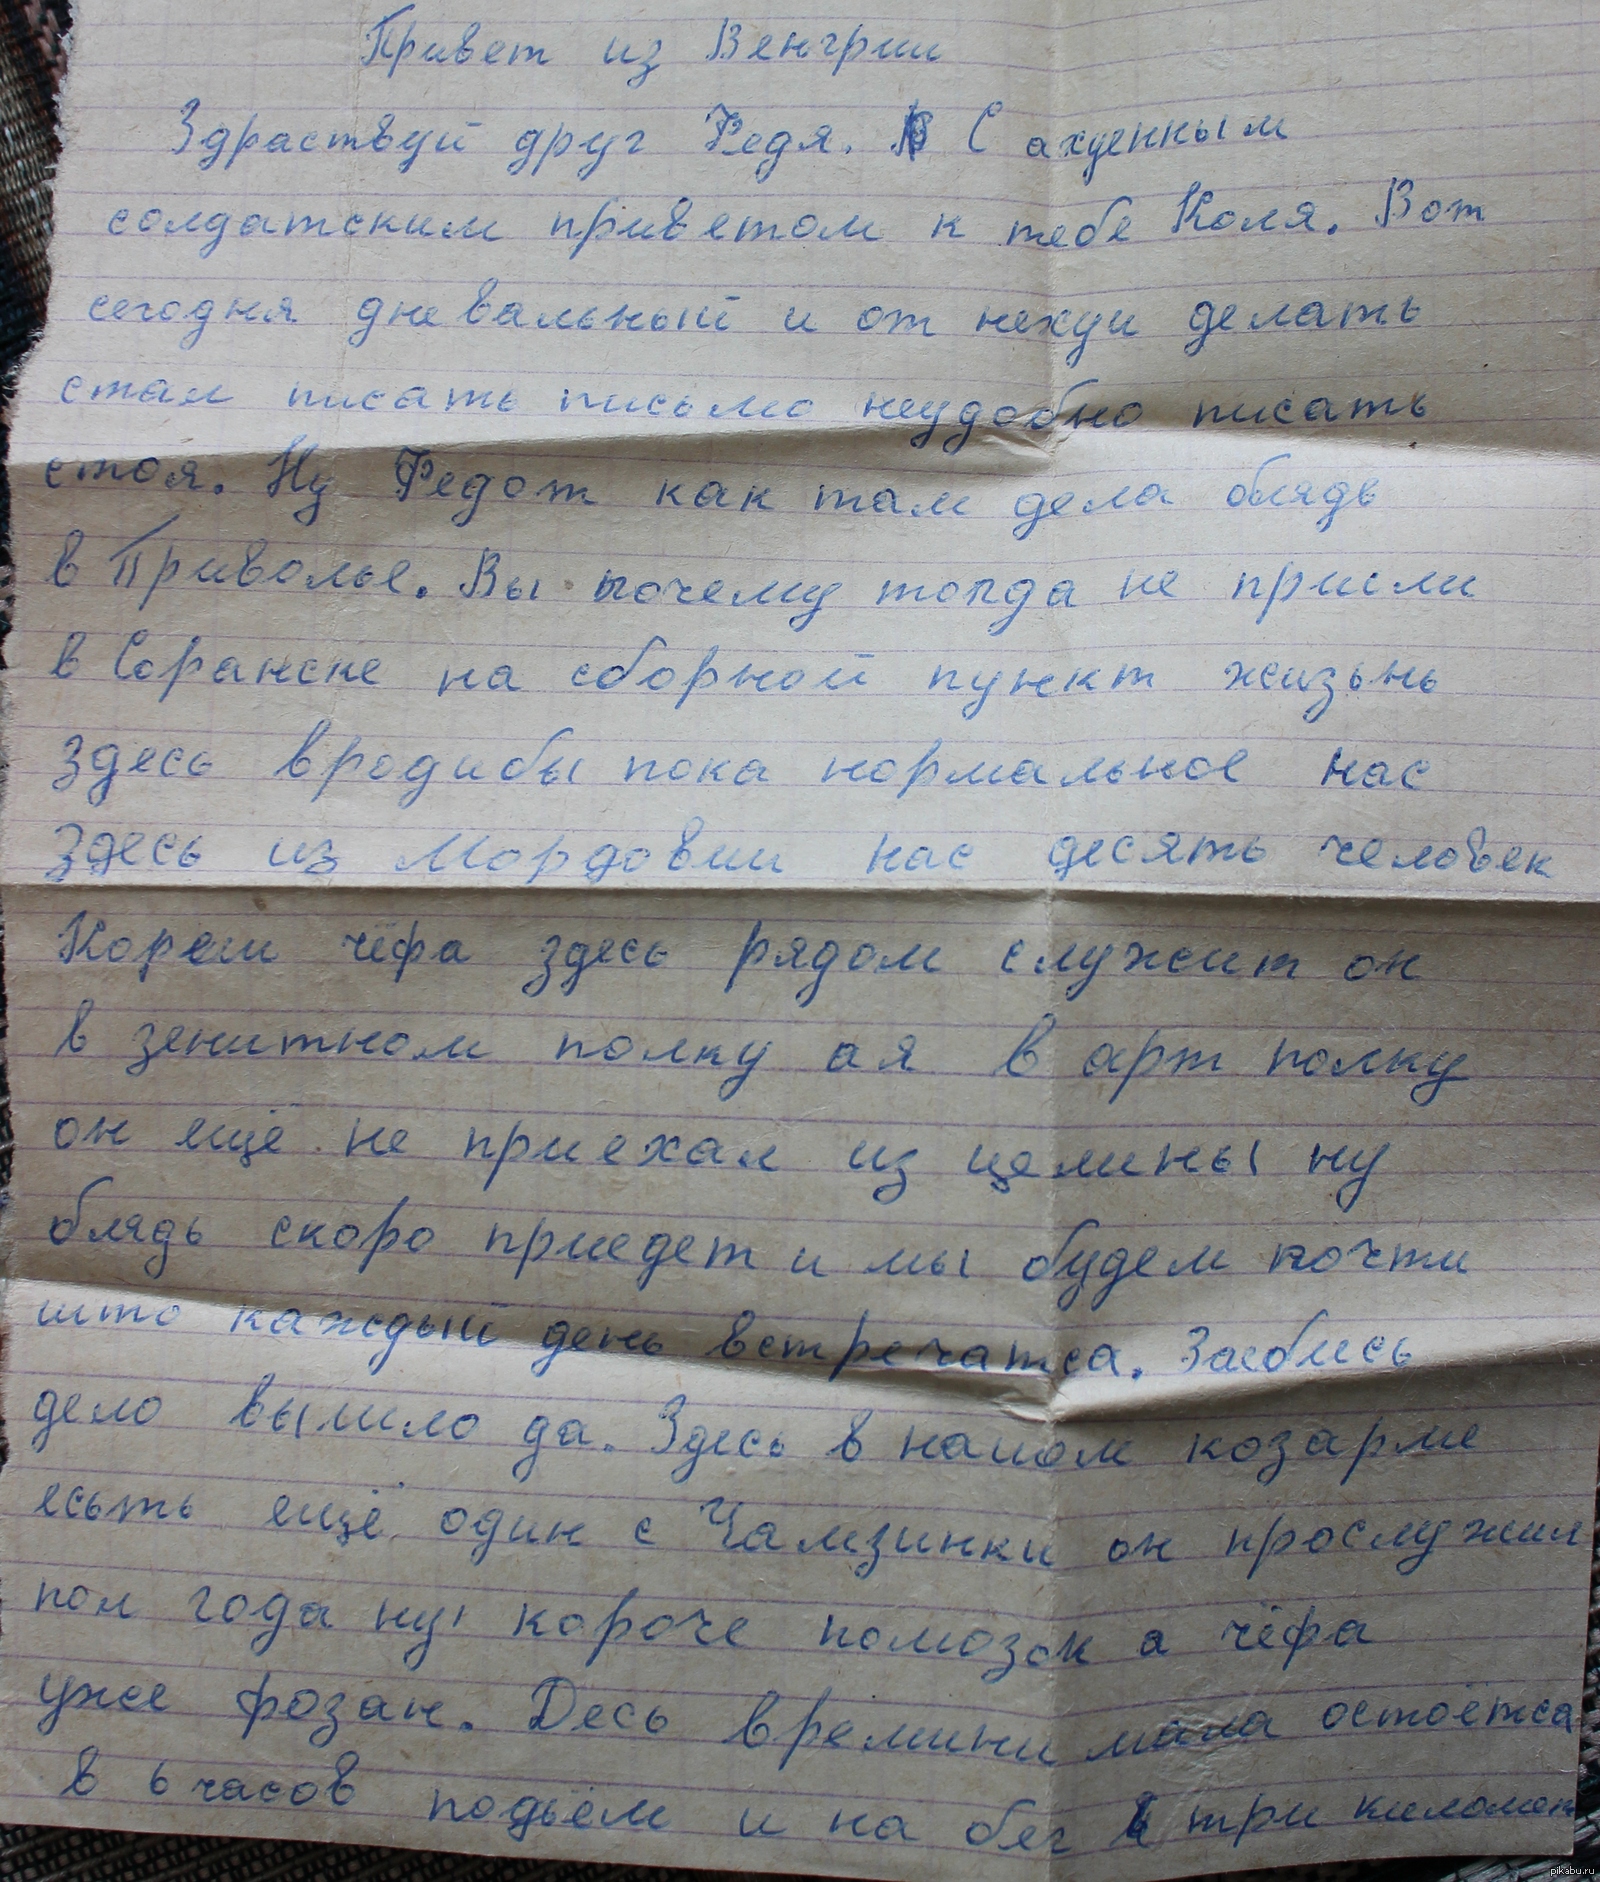 Привет из Венгрии
Здраствуй друг Федя. С ахуенным
солдатским приветом к тебе Коля. Вот
сегодня дневальный и от нехуи делать
стал писать письмо неудобно писать
стоя. Ну Федот как там дела блядь
в Приволье. Вы почему тогда не пришли
в Соранске на сборной пункт жизьнь
здесь вродибы пока нормальное нас
здесь из Мордовии нас десять человек
Кореш чёфа здесь рядом служит он
в зенитном полку ая в арт полку
он ещё не приехал из целины ну
блядь скоро приедет и мы будем почти
што каждый день встречатса. Заебись
дело вышло да. Здесь в нашом козарме
есьть ещё один с Чамзинки он прослужил
пол года ну короче помозок а чёфа
уже фозан. Десь времини мала остоётса
в 6 часов подъём и на бег три километ
pikabu.ru